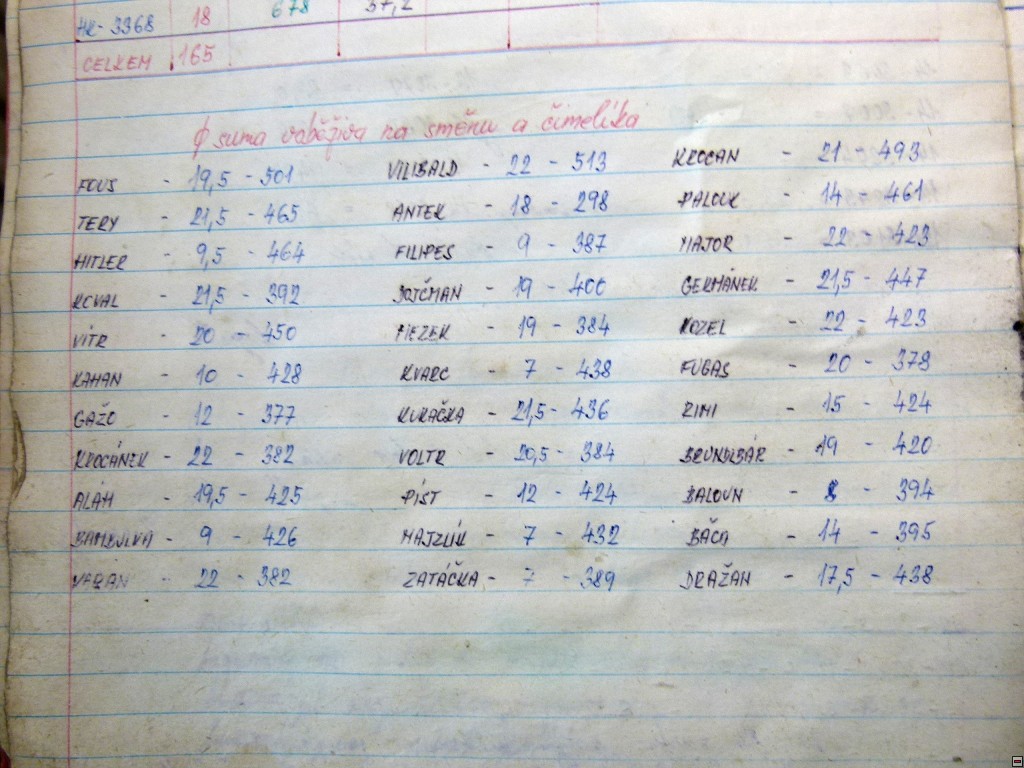 HK-3368 18 678 37,2
CELKEM 165
ϕ suma voběživa na směnu a čimelíka
FOUS - 19,5 - 501 VILIBALD - 22 - 513 KROCAN - 21 - 493
TERY - 21,5 - 465 ANTEK - 18 - 298 PALOUK - 14 - 461
HITLER - 9,5 - 464 FILIPES - 9 - 387 MAJOR - 22 - 423
KOVAL - 21,5 - 392 - 19 - 400 GERMÁNEK - 21,5 - 447
VÍTR - 20 - 450 MEZEK - 19 - 384 KOZEL - 22 - 423
KAHAN - 10 - 428 KVARC - 7 - 438 FUGAS - 20 - 379
GAŽO - 12 - 377 KUKAČKA - 21,5 - 436 ZIMI - 15 - 424
KROCÁNEK - 22 - 382 VOLTR - 20,5 - 384 BRUNDIBÁR - 19 - 420
ALÁH - 19,5 - 425 PÍST - 12 - 424 BALOUN - 8 - 394
- 9 - 426 MAJZLÍK - 7 - 432 BÁČA - 14 - 395
- 22 - 382 ZATÁČKA - 7 - 389 DRAŽAN - 17,5 - 438